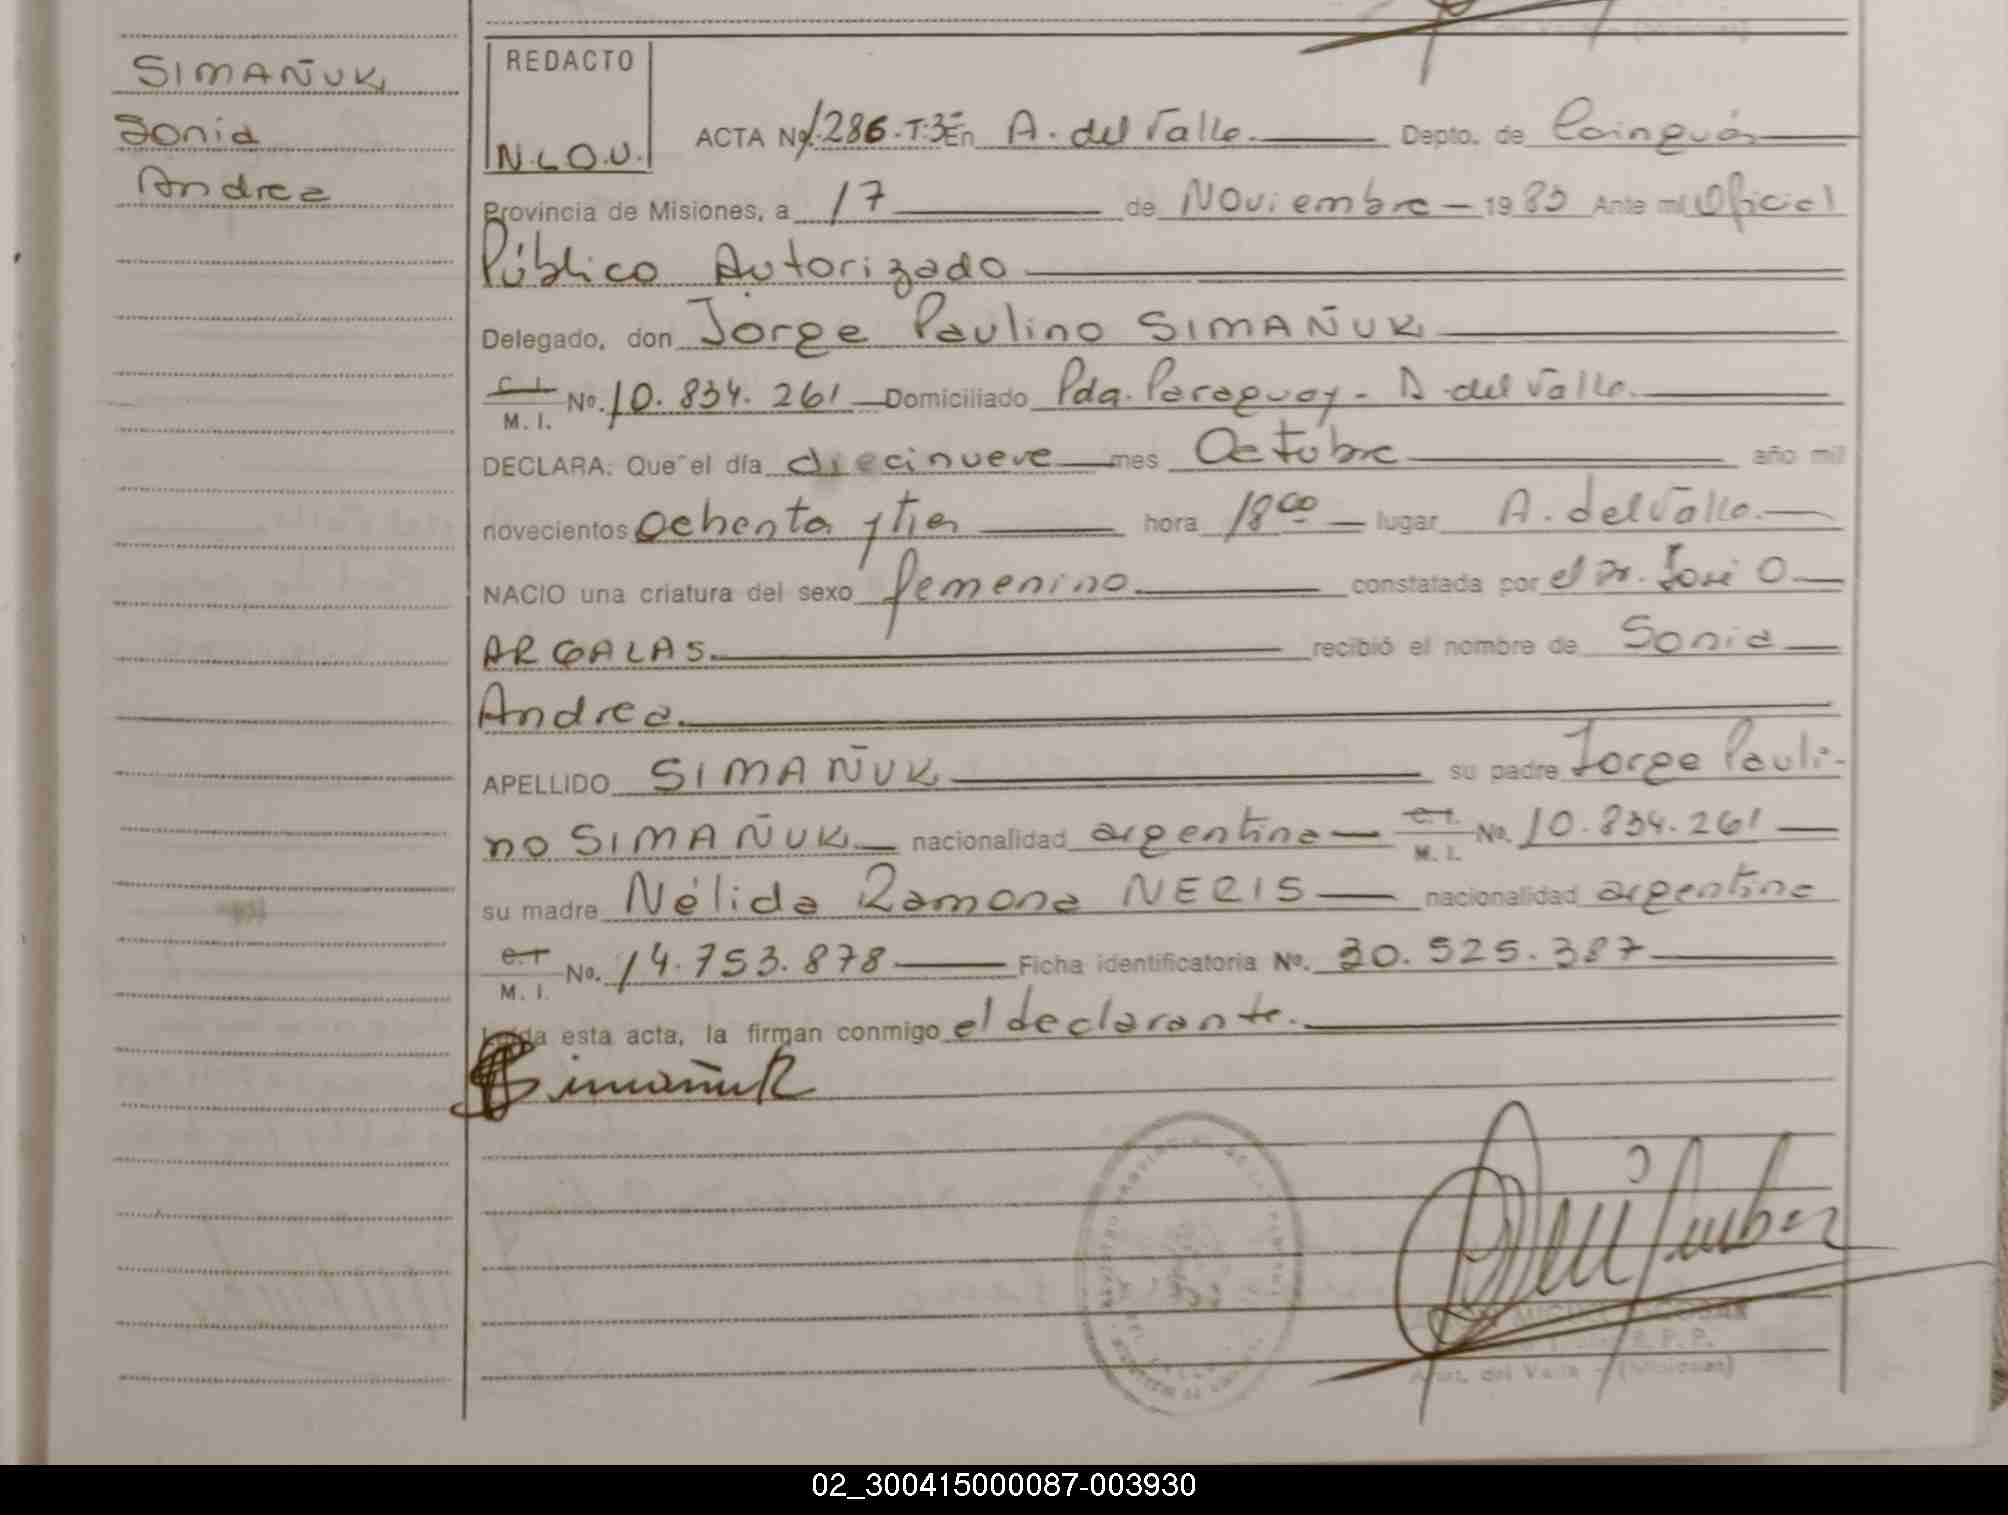 SIMAÑUK
Sonia
Andrea
REDACTO
N.L.O.U.
ACTA Nº 1.286.T:3 En A. del Valle. Depto. de Cainguás
Provincia de Misiones, a 17 de Noviembre 1983 Ante mi Oficial
Público Autorizado
Delegado, don Jorge Paulino SIMAÑUK
C.I.
M. I. Nº. 10.834.261 Domiciliado Pda. Paraguay - A del Valle.
DECLARA: Que el día diecinueve mes Octubre año mil
novecientos ochenta y tres hora 18 00 lugar A. del Valle.
NACIO una criatura del sexo femenino constatada por el Dr. José O
ARGALAS. recibió el nombre de Sonia
Andrea.
APELLIDO SIMAÑUK su padre Jorge Pauli-
no SIMAÑUK nacionalidad argentina C.I.
M. I. No. 10.834.261
su madre Nélida Ramona NERIS nacionalidad argentina
C.I.
M. I. Nº. 14.753.878 Ficha identificatoria Nº. 30.525.387
Leída esta acta, la firman conmigo el declarante.
Simañuk
Arist. del Valle - (Misiones)
02_300415000087-003930